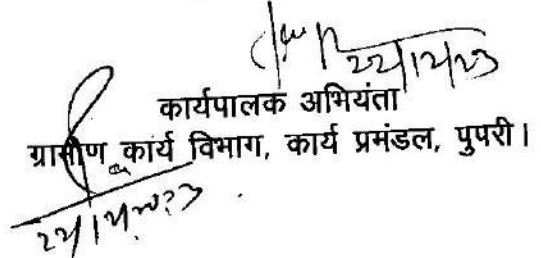 22/12/23
कार्यपालक अभियंता
ग्रामीण कार्य विभाग, कार्य प्रमंडल, पुपरी।
22/12/2023